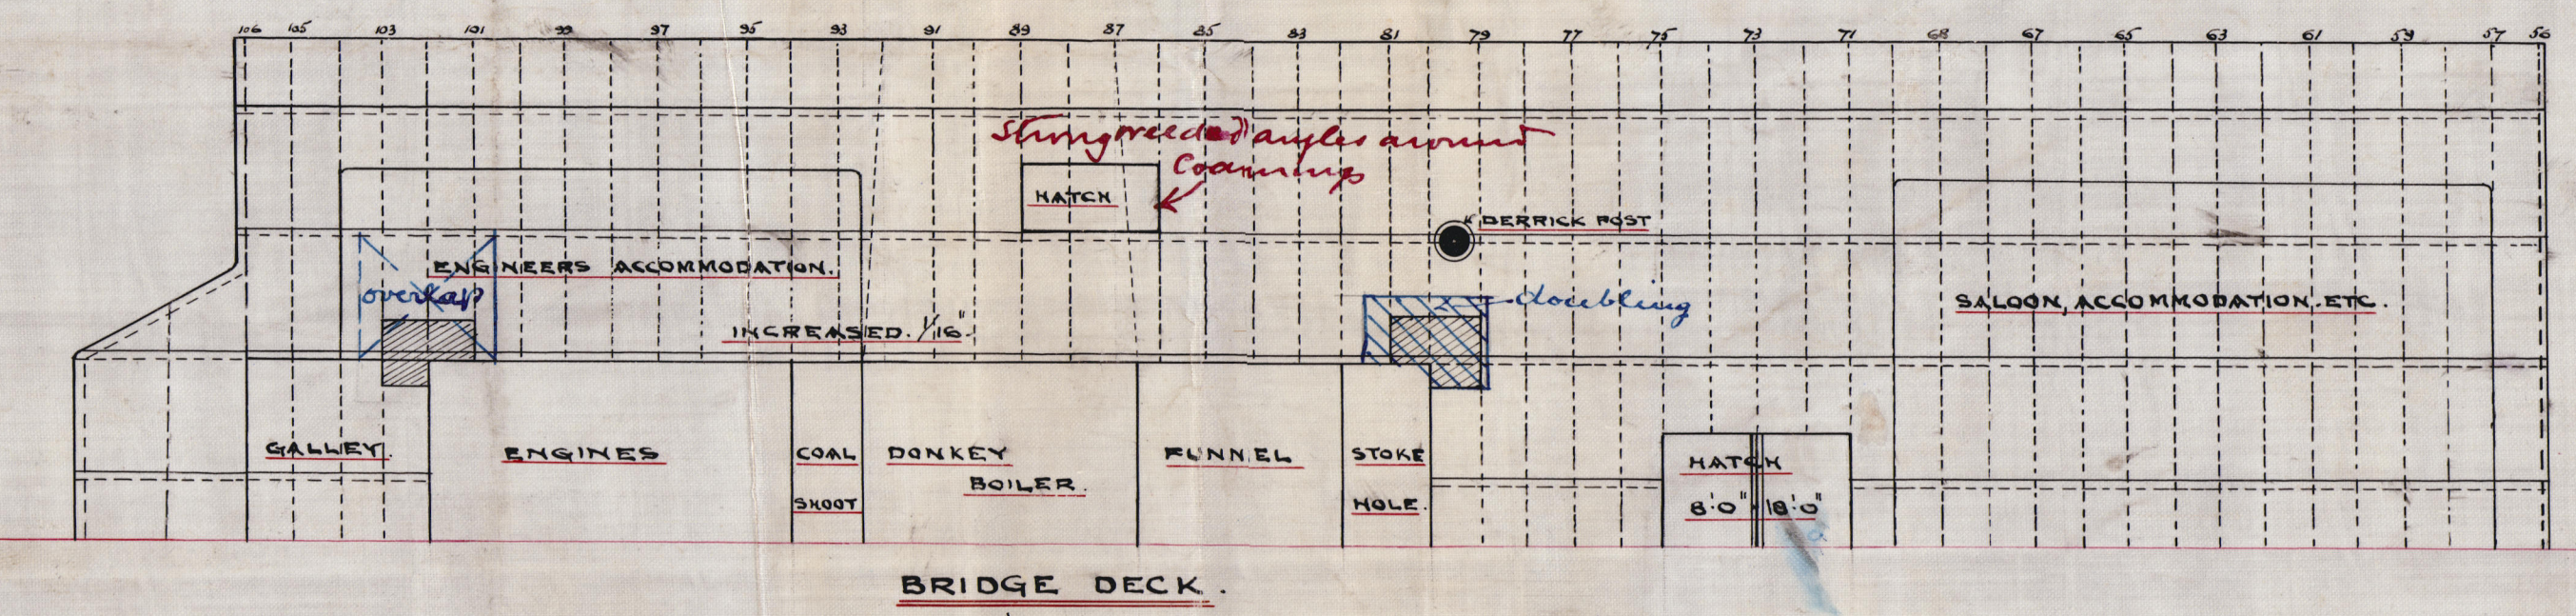 106 105 103 101 99 97 95 93 91 89 87 85 83 81 79 77 75 73 71 68 67 65 63 61 59 57 56
Strong angles around
Coamings
HATCH
DERRICK POST
ENGINEERS ACCOMMODATION.
overlap
doubling
SALOON, ACCOMMODATION. ETC.
INCREASED. 1/16".
GALLEY.
ENGINES
COAL
SHOOT
DONKEY
BOILER.
FUNNEL
STOKE
HOLE.
HATCH
8'·0" 18'·0"
BRIDGE DECK.